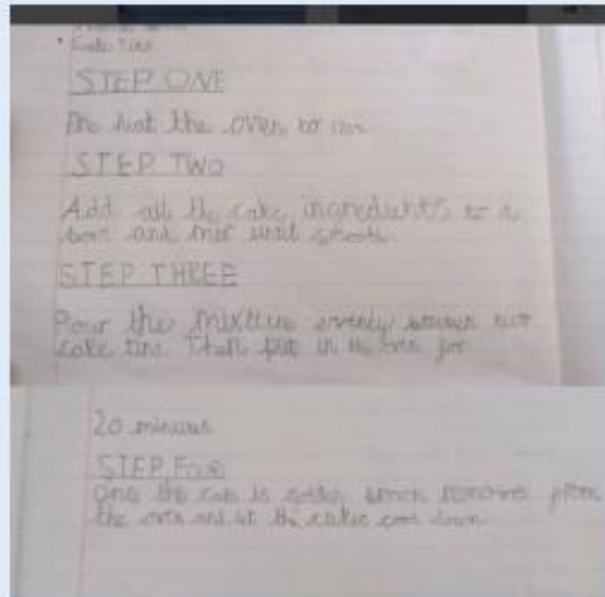 STEP ONE
the oven to
STEP TWO
Add all the cake ingredients to a
and until smooth.
STEP THREE
Pour the mixture evenly between two
cake tins. Then put in the oven for
20 minutes
STEP
the cake is golden brown remove from
the oven and let the cakes cool down